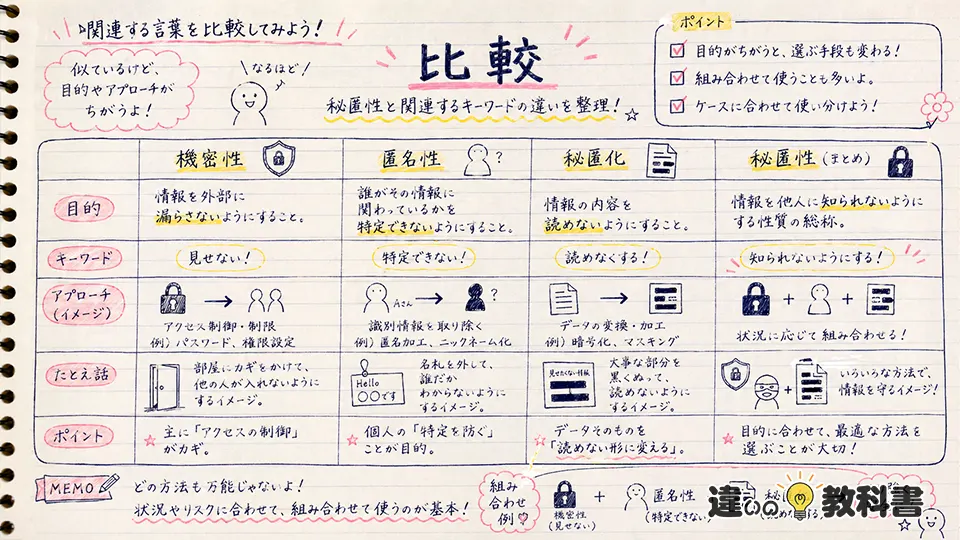 関連する言葉を比較してみよう！
似ているけど、
目的やアプローチが
ちがうよ！
なるほど！
比較
秘匿性と関連するキーワードの違いを整理！
ポイント
目的がちがうと、選ぶ手段も変わる！
組み合わせて使うことも多いよ。
ケースに合わせて使い分けよう！
機密性
匿名性
？
秘匿化
秘匿性（まとめ）
目的
情報を外部に
漏らさないようにすること。
誰がその情報に
関わっているかを
特定できないようにすること。
情報の内容を
読めないようにすること。
情報を他人に知られないように
する性質の総称。
キーワード
見せない！
特定できない！
読めなくする！
知られないようにする！
アプローチ
（イメージ）
→
アクセス制御・制限
例）パスワード、権限設定
Aさん → ？
識別情報を取り除く
例）匿名加工、ニックネーム化
→
データの変換・加工
例）暗号化、マスキング
+ +
状況に応じて組み合わせる！
たとえ話
部屋にカギをかけて、
他の人が入れないように
するイメージ。
Hello
〇〇です
名札を外して、
誰だか
わからないように
するイメージ。
見せたくない情報
大事な部分を
黒くぬって、
読めないように
するイメージ。
+
いろいろな方法で、
情報を守るイメージ！
ポイント
主に「アクセスの制御」
がカギ。
個人の「特定を防ぐ」
ことが目的。
データそのものを
「読めない形に変える」。
目的に合わせて、最適な方法を
選ぶことが大切！
MEMO
どの方法も万能じゃないよ！
状況やリスクに合わせて、組み合わせて使うのが基本！
組み
合わせ
例
機密性
（見せない）
+
匿名性
（特定できない）
違いの教科書